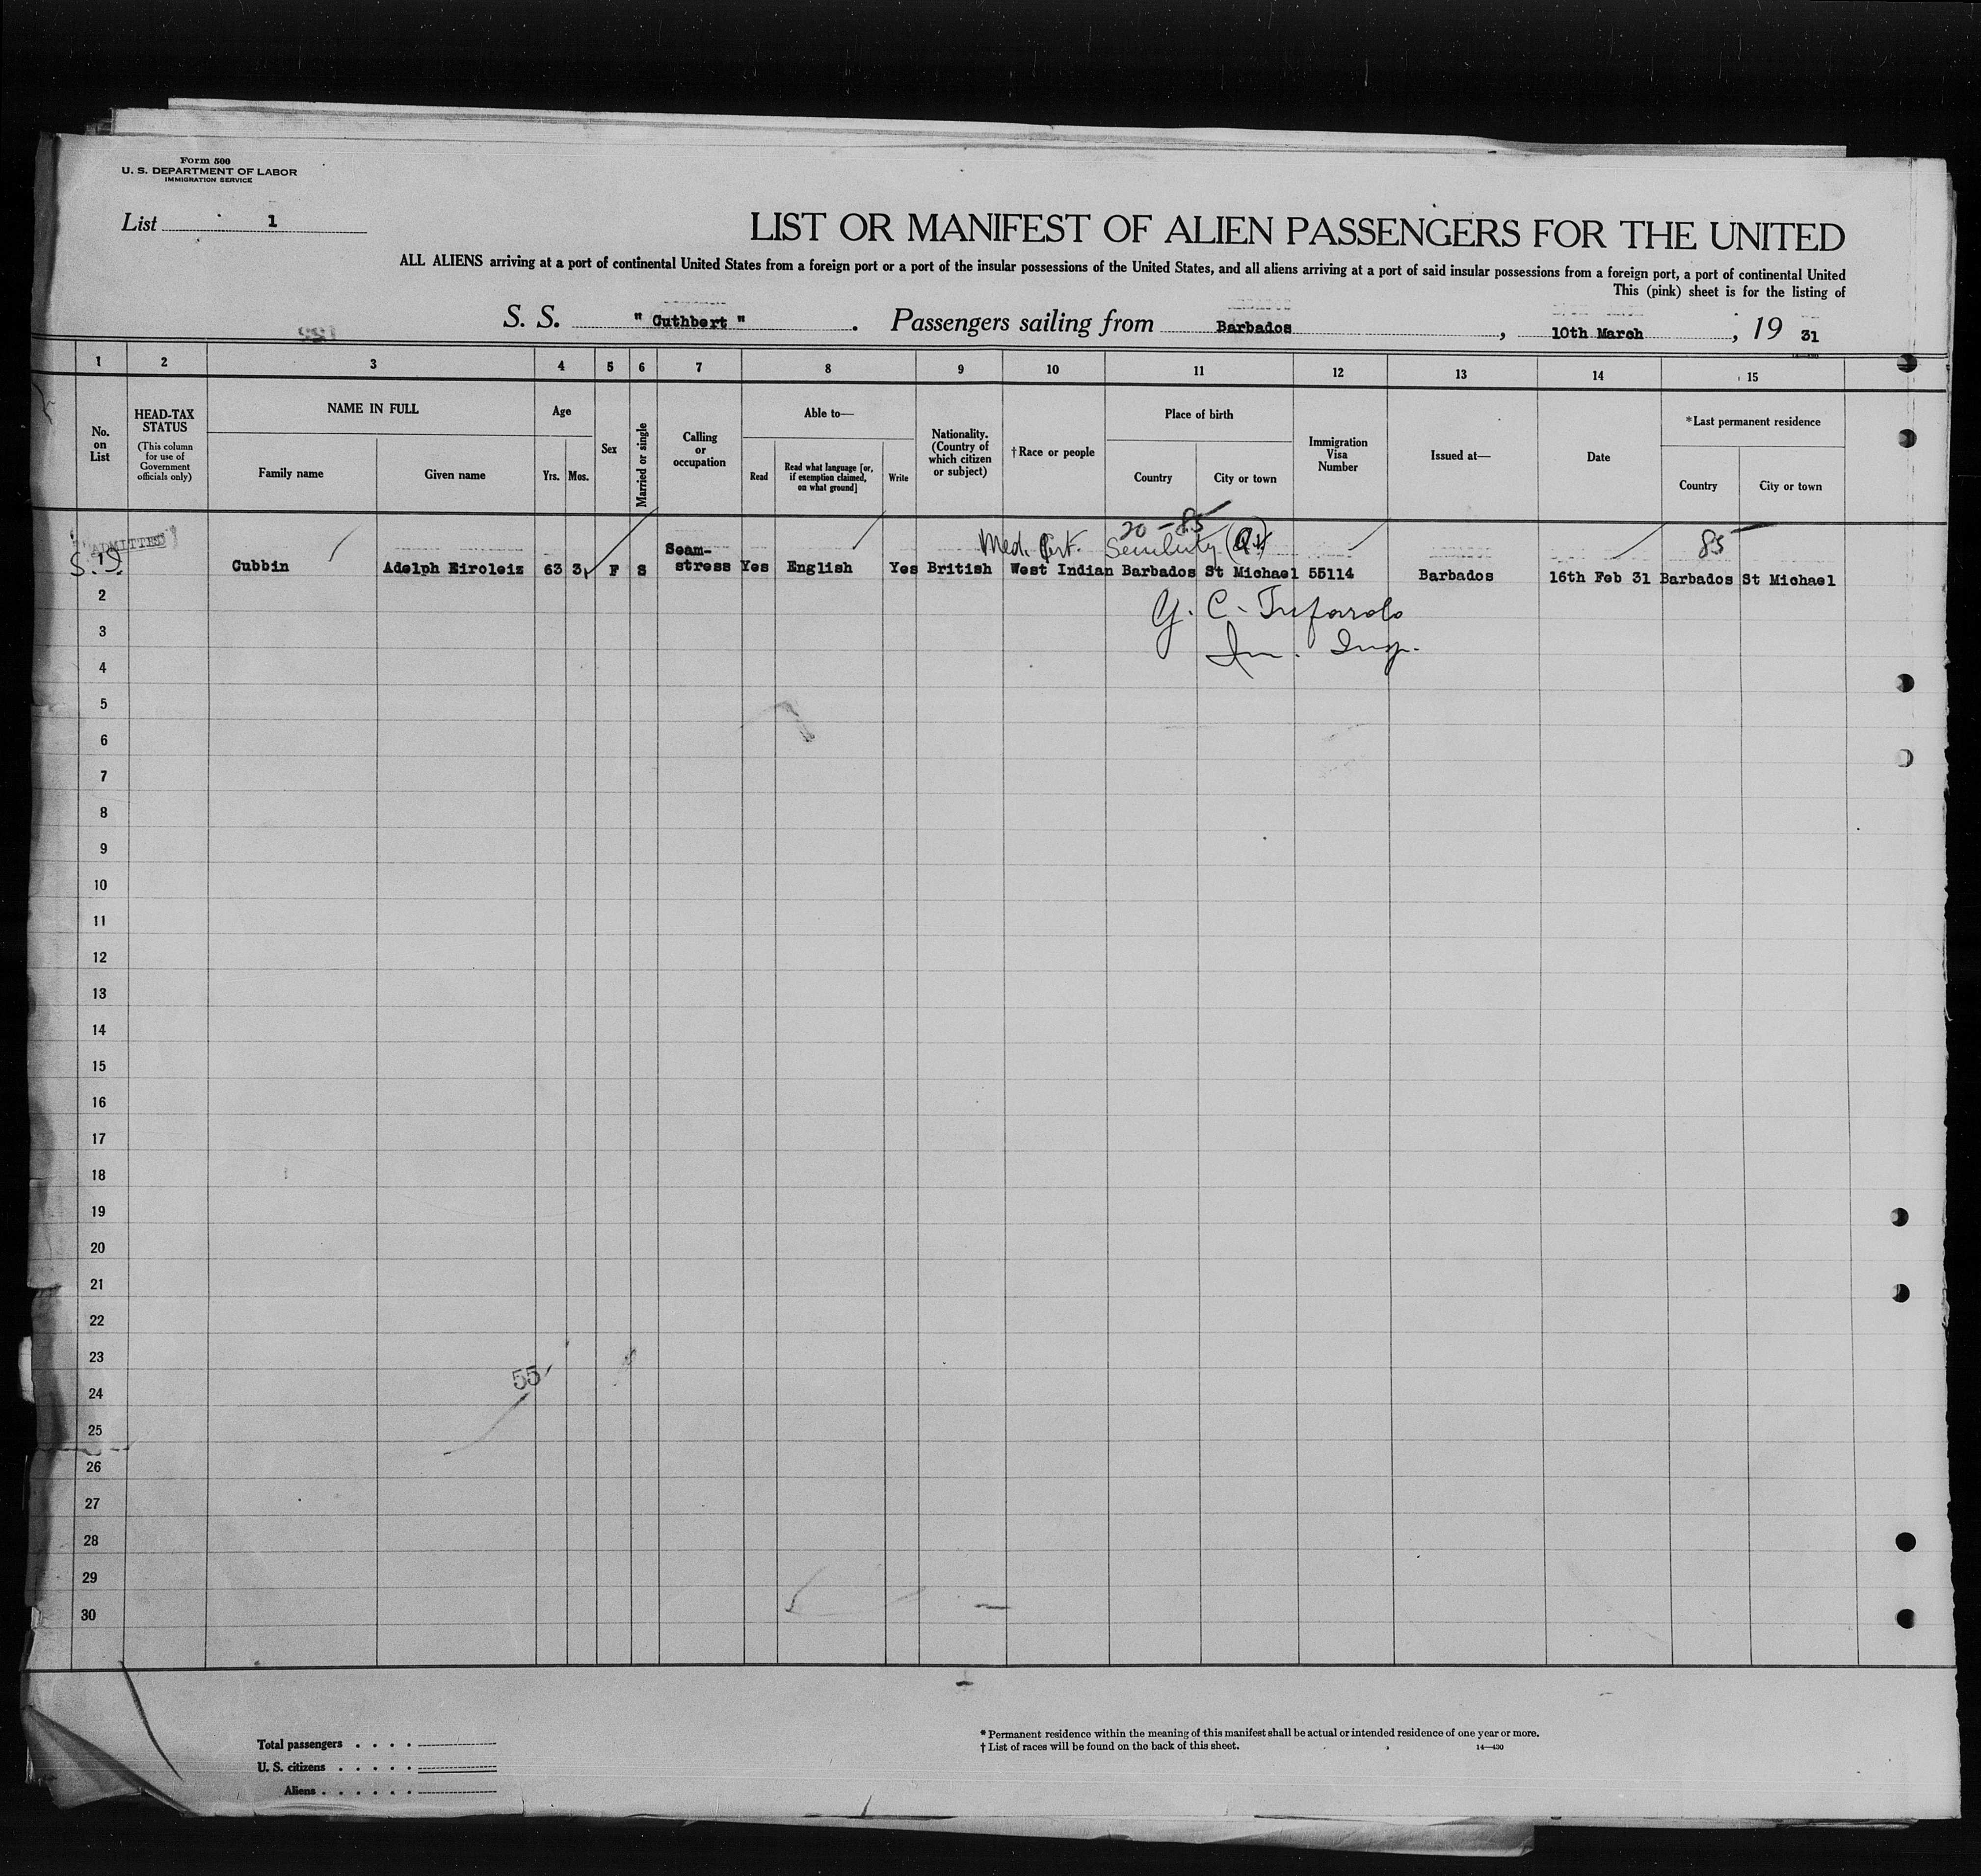 Form 500
U. S. DEPARTMENT OF LABOR
IMMIGRATION SERVICE
List 1
LIST OR MANIFEST OF ALIEN PASSENGERS FOR THE UNITED
ALL ALIENS arriving at a port of continental United States from a foreign port or a port of the insular possessions of the United States, and all aliens arriving at a port of said insular possessions from a foreign port, a port of continental United
This (pink) sheet is for the listing of
S. S. " Cuthbert " . Passengers sailing from Barbados , 10th March , 19 31
1 2 3 4 5 6 7 8 9 10 11 12 13 14 15
No. on List
HEAD-TAX STATUS
(This column for use of Government officials only)
NAME IN FULL
Family name
Given name
Age
Yrs. Mos.
Sex
Married or single
Calling or occupation
Able to—
Read
Read what language [or, if exemption claimed, on what ground]
Write
Nationality. (Country of which citizen or subject)
†Race or people
Place of birth
Country
City or town
Immigration Visa Number
Issued at—
Date
*Last permanent residence
Country
City or town
20 - 85
ADMITTED
Med. Cert. Senility
85
S.I. 1 Cubbin Adelph Eiroleiz 63 3 F S Seam-stress Yes English Yes British West Indian Barbados St Michael 55114 Barbados 16th Feb 31 Barbados St Michael
2
3
Im. Insp.
4
5
6
7
8
9
10
11
12
13
14
15
16
17
18
19
20
21
22
23
55
24
25
26
27
28
29
30
Total passengers . . . .
U. S. citizens . . . . .
Aliens . . . . . .
* Permanent residence within the meaning of this manifest shall be actual or intended residence of one year or more.
† List of races will be found on the back of this sheet.
14—430